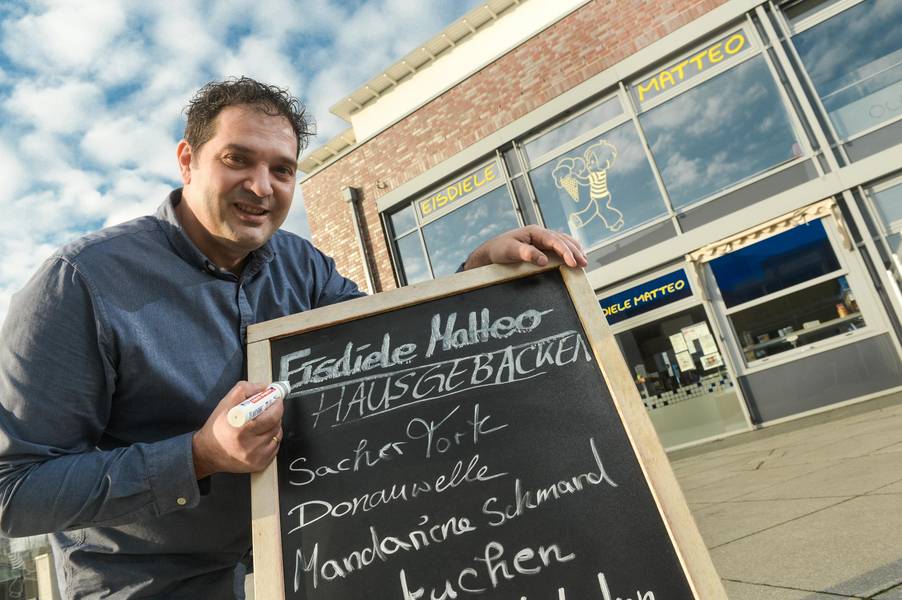 MATTEO
EISDIELE
DIELE MATTEO
Eisdiele Matteo
HAUSGEBACKEN
Sacher Torte
Donauwelle
Mandarine Schmand
kuchen